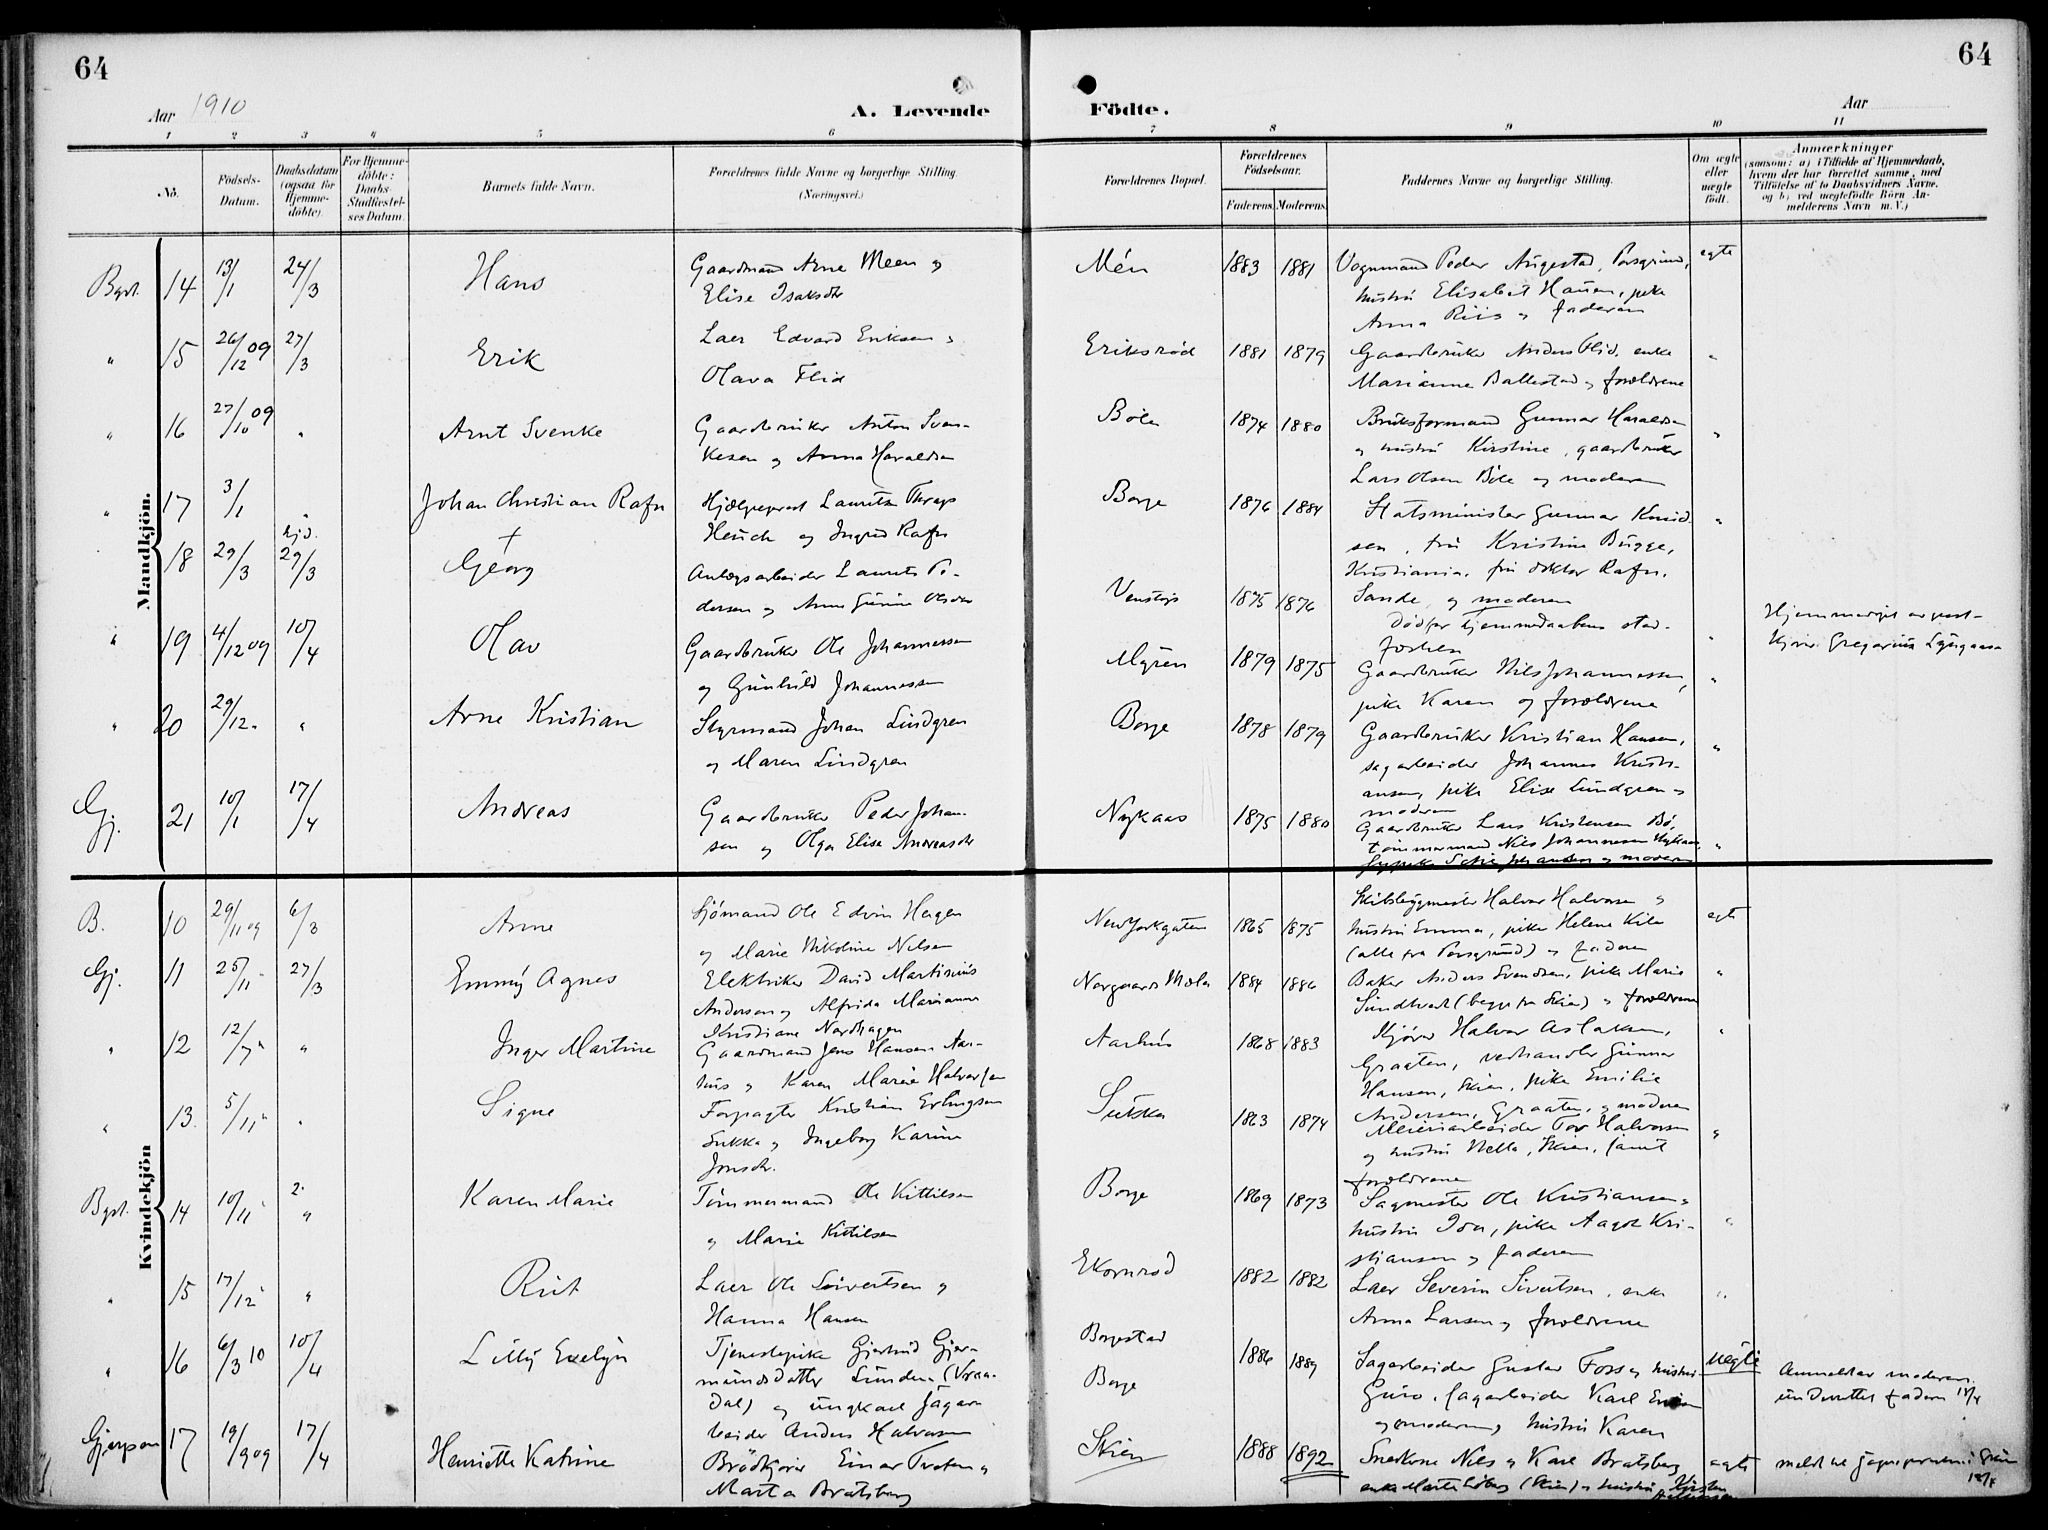 64
64
Aar 1910
A. Levende
Födte.
Aar
1 2 3 4 5 6 7 8 9 10 11
No.
Födsels-Datum.
Daabsdatum (ogsaa for Hjemme-döbte).
For Hjemme-döbte: Daabs-Stadfæstel-ses Datum.
Barnets fulde Navn.
Forældrenes fulde Navne og borgerlige Stilling
(Næringsvei.)
Forældrenes Bopæl.
Forældrenes Födselsaar.
Faderens. Moderens.
Faddernes Navne og borgerlige Stilling.
Om ægte eller uægte födt.
Anmærkninger
(saasom: a) i Tilfælde af Hjemmedaab, hvem der har forrettet samme, med Tilföielse af to Daabsvidners Navne. og b) ved uægtefödte Börn An-melderens Navn m. V.)
Mandkjön.
14 13/1 24/3 Hans Gaardmand Arne Meen og Mén 1883 1881 Vognmand Peder Augestad, Porsgrund, egte
Elise Isaksdtr hustru Elisabet Hansen, pike
Anna Riis og faderen
" 15 26/12 09 27/3 Erik Laer Edvard Eriksen og Eriksrød 1881 1879 Gaardbruker Anders Flid, enke "
Olava Flid Marianne Ballestad og forældrene
" 16 27/10 09 " Arnt Svenke Gaardbruker Anton Sven- Böle 1874 1880 Bruksformand Gunnar Haraldsen "
kesen og Anna Haraldsen og hustru Kirstine, gaardbruker
Lars Olsen Böle og moderen
" 17 3/1 " Johan Christian Rafn Hjælpeprest Lauritz Thrap Borge 1876 1884 Statsminister Gunnar Knud- "
Heuch og Ingrid Rafn sen, fru Kristine Bugge,
Kristiania, fru doktor Rafn,
Sande, og moderen
18 29/3 hjd. 29/3 † Georg Anlægsarbeider Laurits Pe- Venstøp 1875 1876 Död før hjemmedaabens stad- "
dersen og Anne Gurine Olsdtr festelse
Hjemmedøpt av
" 19 4/12 09 10/4 Olav Gaardbruker Ole Johannessen Myren 1879 1875 Gaardbruker Nils Johannessen, "
og Gunhild Johannessen pike Karen og forældrene
" 20 29/12 " " Arne Kristian Styrmand Johan Lindgren Borge 1878 1879 Gaardbruker Kristian Hansen, "
og Maren Lindgren sagarbeider Johannes Kristi-
ansen, pike Elise Lundgren og
moderen
Gj. 21 10/1 17/4 Andreas Gaardbruker Peder Johan- Nykaas 1875 1880 Gaardbruker Lars Kristensen Bö,
sen og Olga Elise Andreasdtr tømmermand Nils Johannessen Nykaas, "
Kvindekjön
B. 10 29/11 09 6/3 Anne Sjömand Ole Edvin Hagen New Yorkgaten 1865 1875 Skibsbygmester Halvor Halvorsen og egte
og Marie Nikoline Nilsen hustru Emma, pike Helene Kile
(alle fra Porsgrund) og faderen
Gj. 11 25/11 " 27/3 Emmy Agnes Elektriker David Martinius 1884 1886 Baker Anders Svendsen, pike Marie "
Andersen og Alfrida Marianne Sundtvedt (begge fra Skien) og forældrene
Kristiane Nordhagen
" 12 12/7 " " Inger Martine Gaardmand Jens Hansen Aar- Aarhus 1868 1883 Kjører Halvor Aslaksen, "
hus og Karen Marie Halvorsen Graaten, vedhandler Gunnar
Hansen, Skien, pike Emilie
Andersen, Graaten, og moderen
" 13. 5/11 " " Signe Forpagter Kristian Erlingsen 1863 1874 Meieriarbeider Tov Halvorsen "
og Ingeborg Karine og hustru Nella, Skien, samt
Jonsdtr. forældrene
14 10/11 " 2. " Karen Marie Tömmermand Ole Kittilsen Borge 1869 1873 Sagmester Ole Kristiansen og "
og Marie Kittilsen hustru Ida, pike Aagot Kri-
stiansen og faderen
" 15 17/12 " " Rut Laer Ole Sivertsen og Ekornrød 1882 1882 Laer Severin Sivertsen, enke "
Hanna Hansen Anna Larsen og forældrene
" 16 6/3 10 10/4 Lilly Evelyn Tjenestepike Gjertrud Gjer- Borgestad 1886 1889 Sagarbeider Gustav Foss og hustru Uegte Anmeldt av moderen.
mundsdatter Lunden (Vraa- Borge Guro, sagarbeider Karl underrettet faderen
dal) og ungkarl sagar- og moderen, hustru Karen
beider Anders Halvorsen
Gjerpen 17 19/9 09 17/4 Henriette Katrine Brödkjører Einar Moten og Skien 1888 1892 Snekkerne Nils og Karl Bratsberg egte meldt til sognepresten i Skien
Marta Bratsberg enke Marte (Skien) og hustru Kirsten